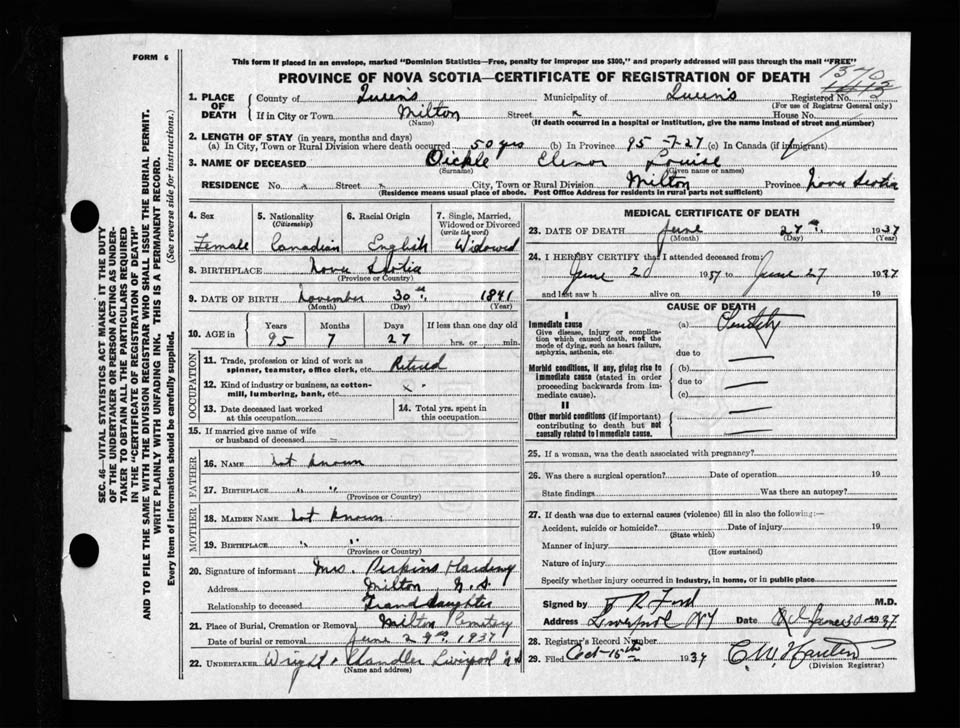 FORM 6
This form if placed in an envelope, marked "Dominion Statistics—Free, penalty for improper use $300," and properly addressed will pass through the mail "FREE"
PROVINCE OF NOVA SCOTIA—CERTIFICATE OF REGISTRATION OF DEATH
1370
1. PLACE OF DEATH County of Queens Municipality of Queens Registered No.
(For use of Registrar General only)
If in City or Town Milton Street x House No.
(Name) (If death occurred in a hospital or institution, give the name instead of street and number)
2. LENGTH OF STAY (in years, months and days)
(a) In City, Town or Rural Division where death occurred 50 yrs (b) In Province 95-7-27 (c) In Canada (if immigrant)
3. NAME OF DECEASED Oickle Elenor Louise
(Surname) (Given name or names)
RESIDENCE No. x Street x City, Town or Rural Division Milton Province Nova Scotia
(Residence means usual place of abode. Post Office Address for residents in rural parts not sufficient)
4. Sex Female
5. Nationality (Citizenship) Canadian
6. Racial Origin English
7. Single, Married, Widowed or Divorced (write the word) Widowed
8. BIRTHPLACE Nova Scotia
(Province or Country)
9. DATE OF BIRTH November 30th 1841
(Month) (Day) (Year)
10. AGE in Years Months Days If less than one day old
95 7 27 hrs. or min.
OCCUPATION
11. Trade, profession or kind of work as spinner, teamster, office clerk, etc. Retired
12. Kind of industry or business, as cotton-mill, lumbering, bank, etc. x
13. Date deceased last worked at this occupation
14. Total yrs. spent in this occupation
15. If married give name of wife or husband of deceased
FATHER
16. NAME Not known
17. BIRTHPLACE " "
(Province or Country)
MOTHER
18. MAIDEN NAME Not known
19. BIRTHPLACE " "
(Province or Country)
20. Signature of informant Mrs. Perkins Hardeny
Address Milton N.S.
Relationship to deceased Granddaughter
21. Place of Burial, Cremation or Removal Milton Cemetery
Date of burial or removal June 29th 1937
22. UNDERTAKER Wright & Chandler Liverpool N S
(Name and address)
MEDICAL CERTIFICATE OF DEATH
23. DATE OF DEATH June 27th 1937
(Month) (Day) (Year)
24. I HEREBY CERTIFY that I attended deceased from:
June 20 1937 to June 27 1937
and last saw h alive on 19
CAUSE OF DEATH
I
Immediate cause (a) Senility
Give disease, injury or complication which caused death, not the mode of dying, such as heart failure, asphyxia, asthenia, etc.
due to
Morbid conditions, if any, giving rise to immediate cause (stated in order proceeding backwards from immediate cause).
(b)
due to
(c)
II
Other morbid conditions (if important) contributing to death but not causally related to immediate cause.
25. If a woman, was the death associated with pregnancy?
26. Was there a surgical operation? Date of operation 19
State findings Was there an autopsy?
27. If death was due to external causes (violence) fill in also the following:—
Accident, suicide or homicide? Date of injury 19
(State which)
Manner of injury
(How sustained)
Nature of injury
Specify whether injury occurred in industry, in home, or in public place
Signed by R Ford M.D.
Address Liverpool NS Date June 30 1937
28. Registrar's Record Number
29. Filed Oct 15th 1937
(Division Registrar)
SEC. 46—VITAL STATISTICS ACT MAKES IT THE DUTY
OF THE UNDERTAKER OR PERSON ACTING AS UNDERTAKER TO OBTAIN ALL THE PARTICULARS REQUIRED
IN THE "CERTIFICATE OF REGISTRATION OF DEATH"
AND TO FILE THE SAME WITH THE DIVISION REGISTRAR WHO SHALL ISSUE THE BURIAL PERMIT.
WRITE PLAINLY WITH UNFADING INK. THIS IS A PERMANENT RECORD.
Every item of information should be carefully supplied. (See reverse side for instructions.)